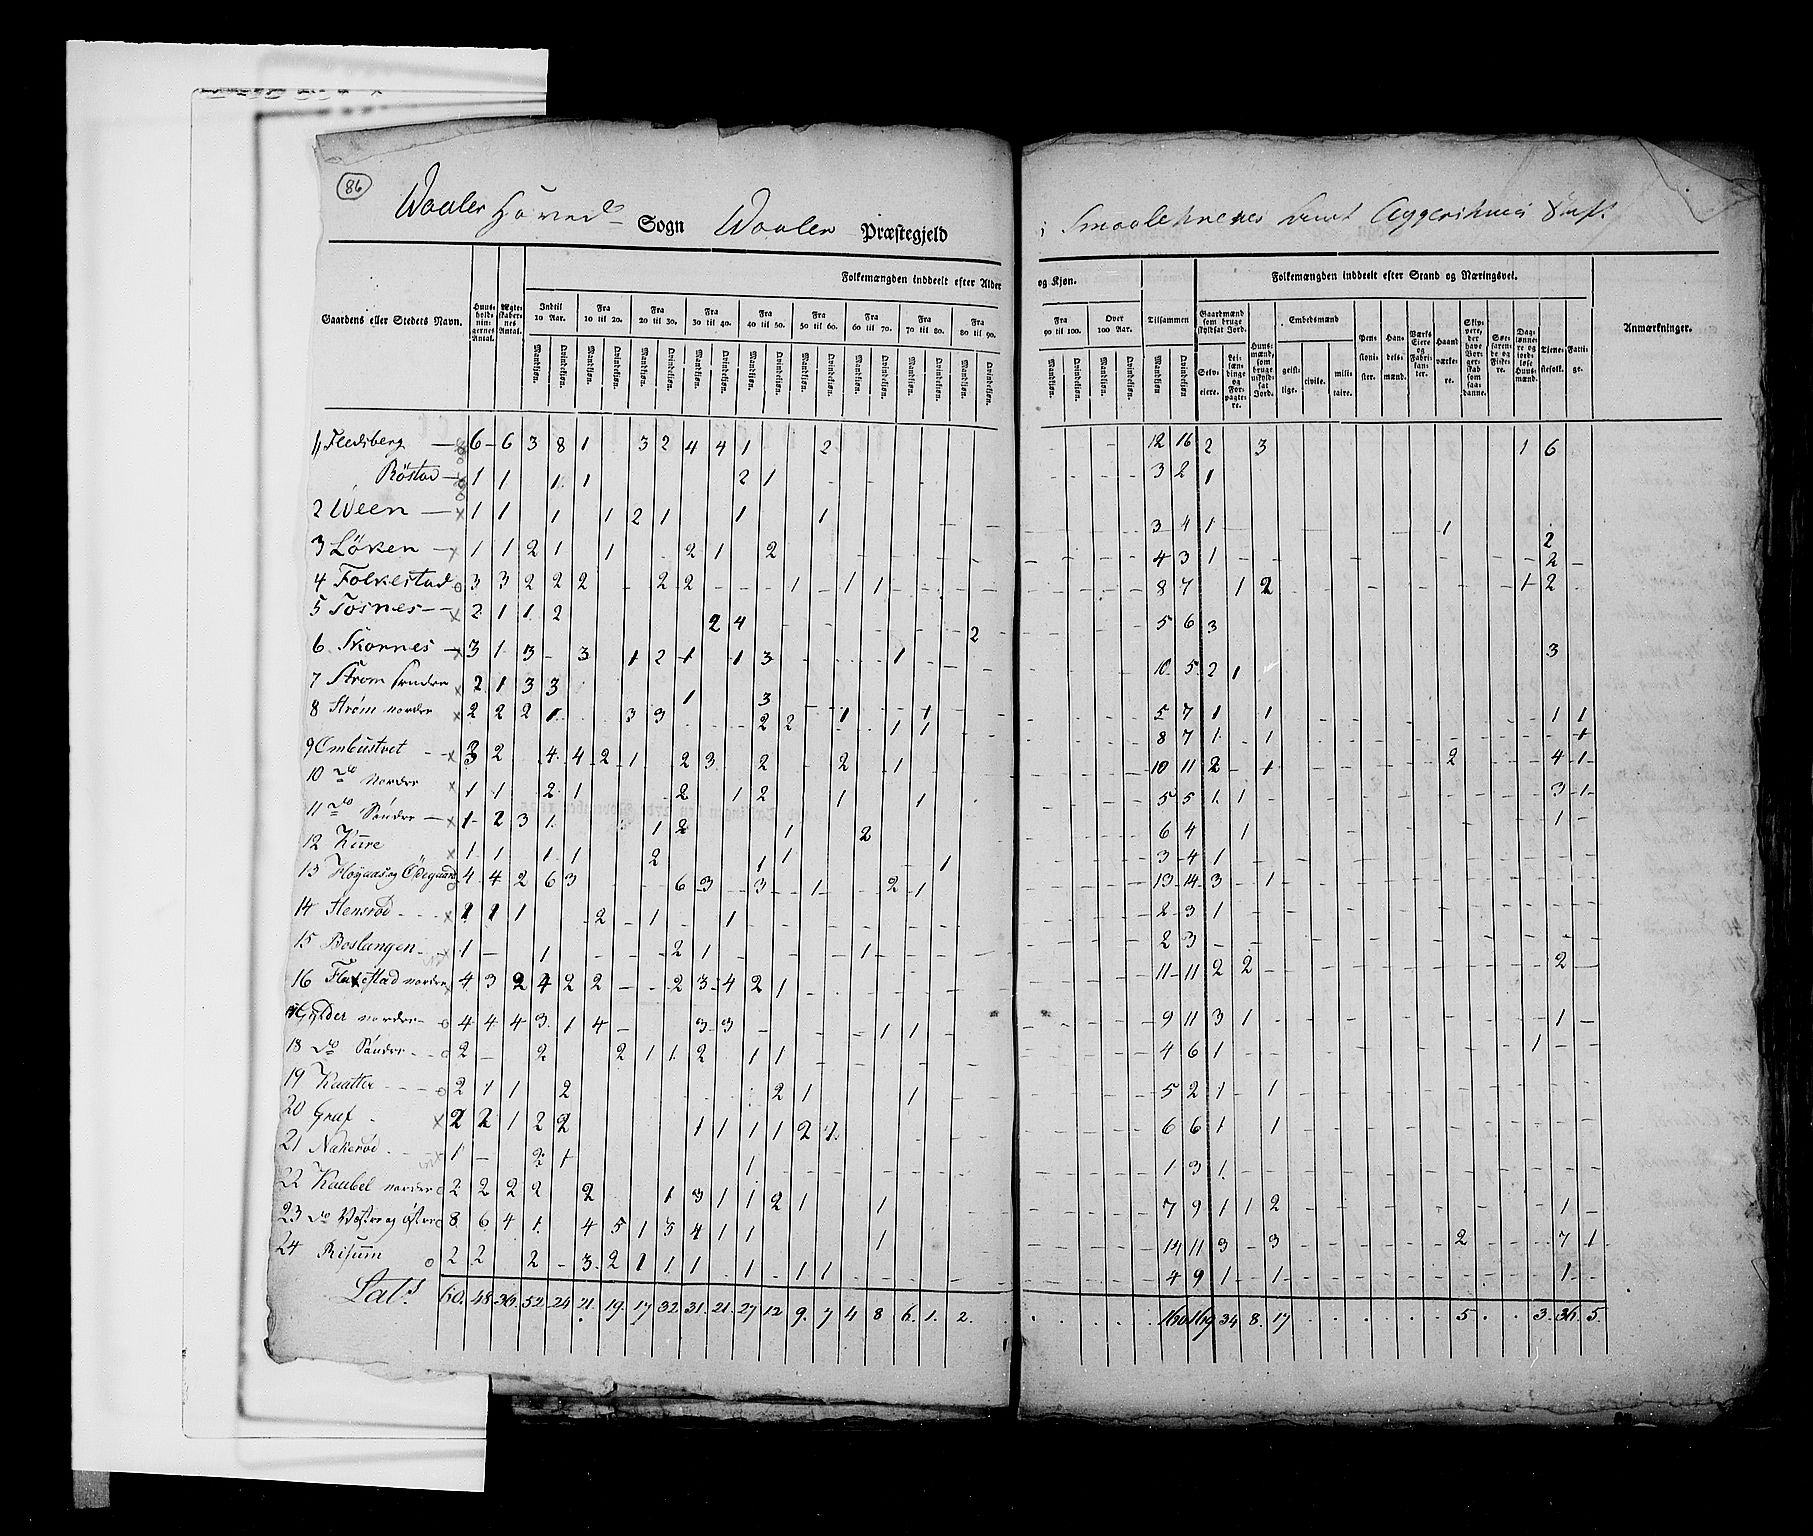 86
Waaler Hoved Sogn Waaler Præstegjeld i Smaalehnenes Amt Aggershuus Stift
Gaardens eller Stedets Navn.
Huusholdningernes Antal.
Ægteskabernes Antal.
Folkemængden inddeelt efter Alder og Kjøn.
Indtil 10 Aar.
Fra 10 til 20.
Fra 20 til 30.
Fra 30 til 40.
Fra 40 til 50.
Fra 50 til 60.
Fra 60 til 70.
Fra 70 til 80.
Fra 80 til 90.
Fra 90 til 100.
Over 100 Aar.
Tilsammen
Mandkjøn. Qvindekjøn.
Folkemængden inddeelt efter Stand og Næringsvei.
Gaardmænd som bruge skyldsat Jord.
Selveiere.
Leilændinge og Forpagtere.
Huusmænd, som bruge uskyldsat Jord.
Embedsmænd
geistlige. civile. militaire.
Pensionister.
Handelsmænd.
Værks Eiere og Fabrikanter.
Haandværkere.
Skippere, der have Borgerskab som saadanne.
Søefarende og Fiskere.
Daglønnere og jordløse Huusmænd.
Tjenestefolk.
Fattige.
Anmærkninger.
1 Flesberg 6 6 3 8 1 3 2 4 4 1 2 12 16 2 3 1 6
Röstad 1 1 1 1 2 1 3 2 1
2 Ween 1 1 1 1 2 1 1 1 3 4 1 1 2
3 Löken 1 1 2 1 1 2 1 2 4 3 1 2
4 Folkestad 3 3 2 2 2 2 2 1 1 1 8 7 1 2 1 2
5 Tosnes 2 1 1 2 2 4 2 5 6 3
6 Skornes 3 1 3 3 1 2 1 1 3 1 10 5 2 1 3
7 Strøm søndre 2 1 3 3 1 3 5 7 1 1 1 1
8 Strøm nordre 2 2 2 1 3 3 2 2 1 1 1 1 8 7 1 1 1
9 Ombustvet 3 2 4 4 2 1 2 3 2 2 1 10 11 2 1 2 4 1
10 do Nordre 1 1 2 1 2 1 2 1 1 5 5 1 1 3 1
11 do Söndre 1 2 3 1 1 2 1 2 6 4 1 1
12 Kure 1 1 1 1 2 1 1 1 3 4 1
13 Høyaas og Ödegaard 4 4 2 6 3 6 3 3 1 2 1 13 14 3 1
14 Stensrød 1 1 1 2 1 1 2 3 1
15 Boslangen 1 1 2 1 1 2 3
16 Flakestad nordre 4 3 2 4 2 2 2 3 4 2 1 11 11 2 2 2
Gylder nordre 4 4 4 3 1 4 3 3 1 1 9 11 3 1 1
18 do Söndre 2 2 2 1 1 2 1 1 4 6 1 1
19 Kaatter 2 1 1 2 2 1 1 5 2 1 1
20 Graf 2 2 1 2 2 1 1 1 1 2 6 6 1 1
21 Nakerød 1 2 1 1 1 3 1
22 Kaabel nordre 2 2 2 2 2 1 3 1 1 2 1 1 7 9 1 1 2 1
23 do Vestre og østre 8 6 4 1 4 5 1 3 4 1 1 1 14 11 3 3 2 7 1
24 Risum 2 2 2 3 2 1 1 1 1 1 1 4 9 1 1 1
Lats 60. 48. 36. 52. 24 21. 19. 17 32. 31. 21. 27 12 9. 7 4 8 6. 1. 2. 160 169 34 8. 17 5. 3. 36. 5.